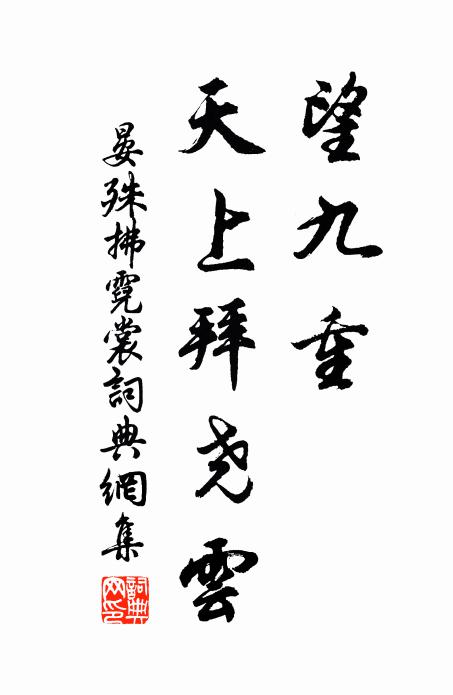 望九重
天上拜尧雲
晏殊拂霓裳詞典網集
詞典網印